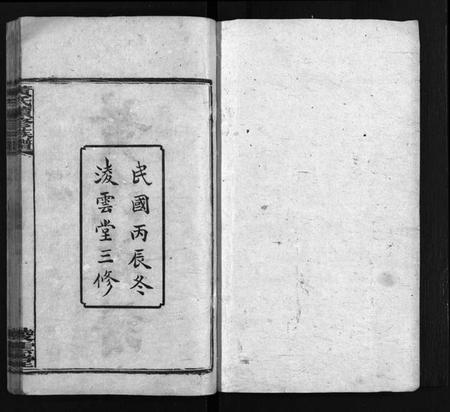 民國丙辰冬
淩雲堂三修